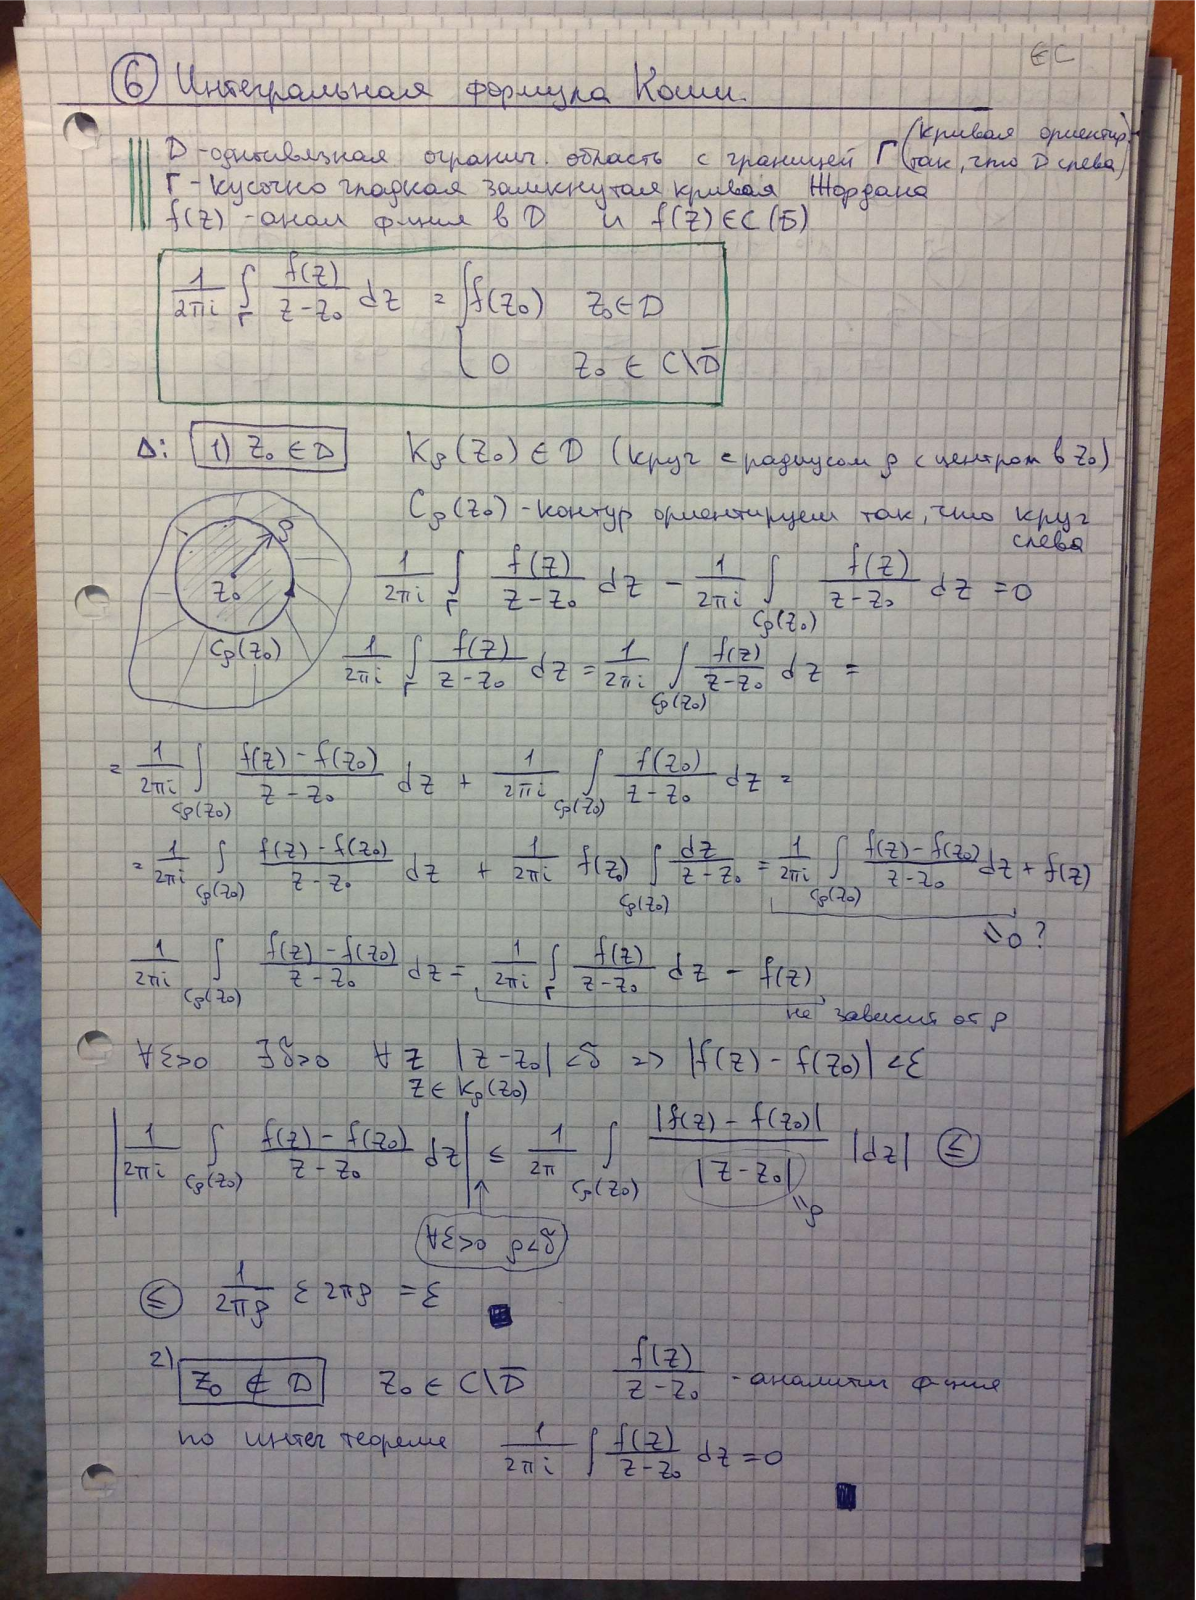 ∈C
⑥ Интегральная формула Коши.
(кривая ориентир.
D - односвязная огранич. область с границей Γ так, что D слева)
Γ - кусочно гладкая замкнутая кривая Жордана
f(z) - анал ф-ция в D и f(z)∈C(D̅)
1/(2πi) ∫_Γ f(z)/(z-z₀) dz = { f(z₀) z₀∈D
0 z₀ ∈ C\D̅
Δ: 1) z₀ ∈ D K_ρ(z₀) ∈ D (круг с радиусом ρ с центром в z₀)
C_ρ(z₀) - контур ориентируем так, что круг
слева
ρ
z₀
C_ρ(z₀)
1/(2πi) ∫_Γ f(z)/(z-z₀) dz - 1/(2πi) ∫_{C_ρ(z₀)} f(z)/(z-z₀) dz = 0
1/(2πi) ∫_Γ f(z)/(z-z₀) dz = 1/(2πi) ∫_{C_ρ(z₀)} f(z)/(z-z₀) dz =
= 1/(2πi) ∫_{C_ρ(z₀)} (f(z) - f(z₀))/(z-z₀) dz + 1/(2πi) ∫_{C_ρ(z₀)} f(z₀)/(z-z₀) dz =
= 1/(2πi) ∫_{C_ρ(z₀)} (f(z) - f(z₀))/(z-z₀) dz + 1/(2πi) f(z₀) ∫_{C_ρ(z₀)} dz/(z-z₀) = 1/(2πi) ∫_{C_ρ(z₀)} (f(z) - f(z₀))/(z-z₀) dz + f(z)
= 0 ?
1/(2πi) ∫_{C_ρ(z₀)} (f(z) - f(z₀))/(z-z₀) dz = 1/(2πi) ∫_Γ f(z)/(z-z₀) dz - f(z)
не зависит от ρ
∀ε>0 ∃δ>0 ∀z |z-z₀|<δ => |f(z) - f(z₀)|<ε
z∈K_ρ(z₀)
|1/(2πi) ∫_{C_ρ(z₀)} (f(z) - f(z₀))/(z-z₀) dz| ≤ 1/(2π) ∫_{C_ρ(z₀)} |f(z) - f(z₀)|/|z-z₀| |dz| ≤
= ρ
∀ε>0 ρ<δ
≤ 1/(2πρ) ε 2πρ = ε
2) z₀ ∉ D z₀ ∈ C\D̅ f(z)/(z-z₀) - аналитич ф-ция
по интег теореме 1/(2πi) ∫ f(z)/(z-z₀) dz = 0